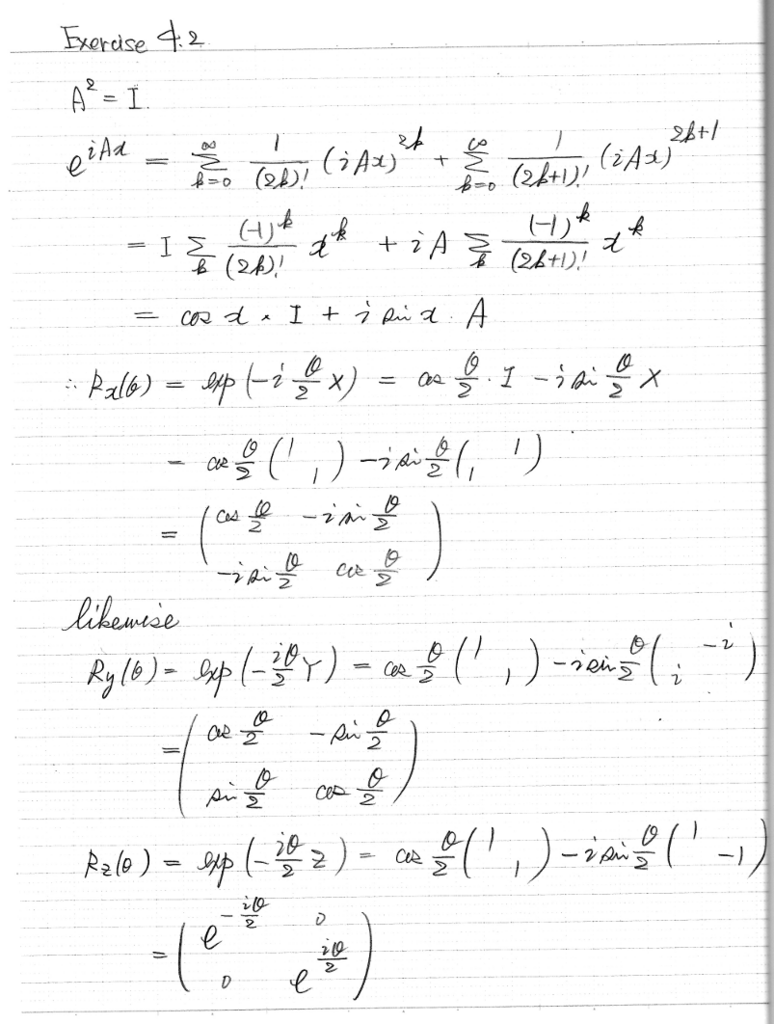 Exercise 4.2
A² = I.
e^{iAx} = Σ_{k=0}^{∞} 1/(2k)! (iAx)^{2k} + Σ_{k=0}^{∞} 1/(2k+1)! (iAx)^{2k+1}
= I Σ_k (-1)^k/(2k)! x^k + iA Σ_k (-1)^k/(2k+1)! x^k
= cos x · I + i sin x · A
∴ Rx(θ) = exp(-i θ/2 X) = cos θ/2 · I - i sin θ/2 X
= cos θ/2 (1 1) - i sin θ/2 (1 1)
= (cos θ/2 -i sin θ/2
-i sin θ/2 cos θ/2)
likewise
Ry(θ) = exp(-iθ/2 Y) = cos θ/2 (1 1) - i sin θ/2 (-i i)
= (cos θ/2 -sin θ/2
sin θ/2 cos θ/2)
Rz(θ) = exp(-iθ/2 Z) = cos θ/2 (1 1) - i sin θ/2 (1 -1)
= (e^{-iθ/2} 0
0 e^{iθ/2})